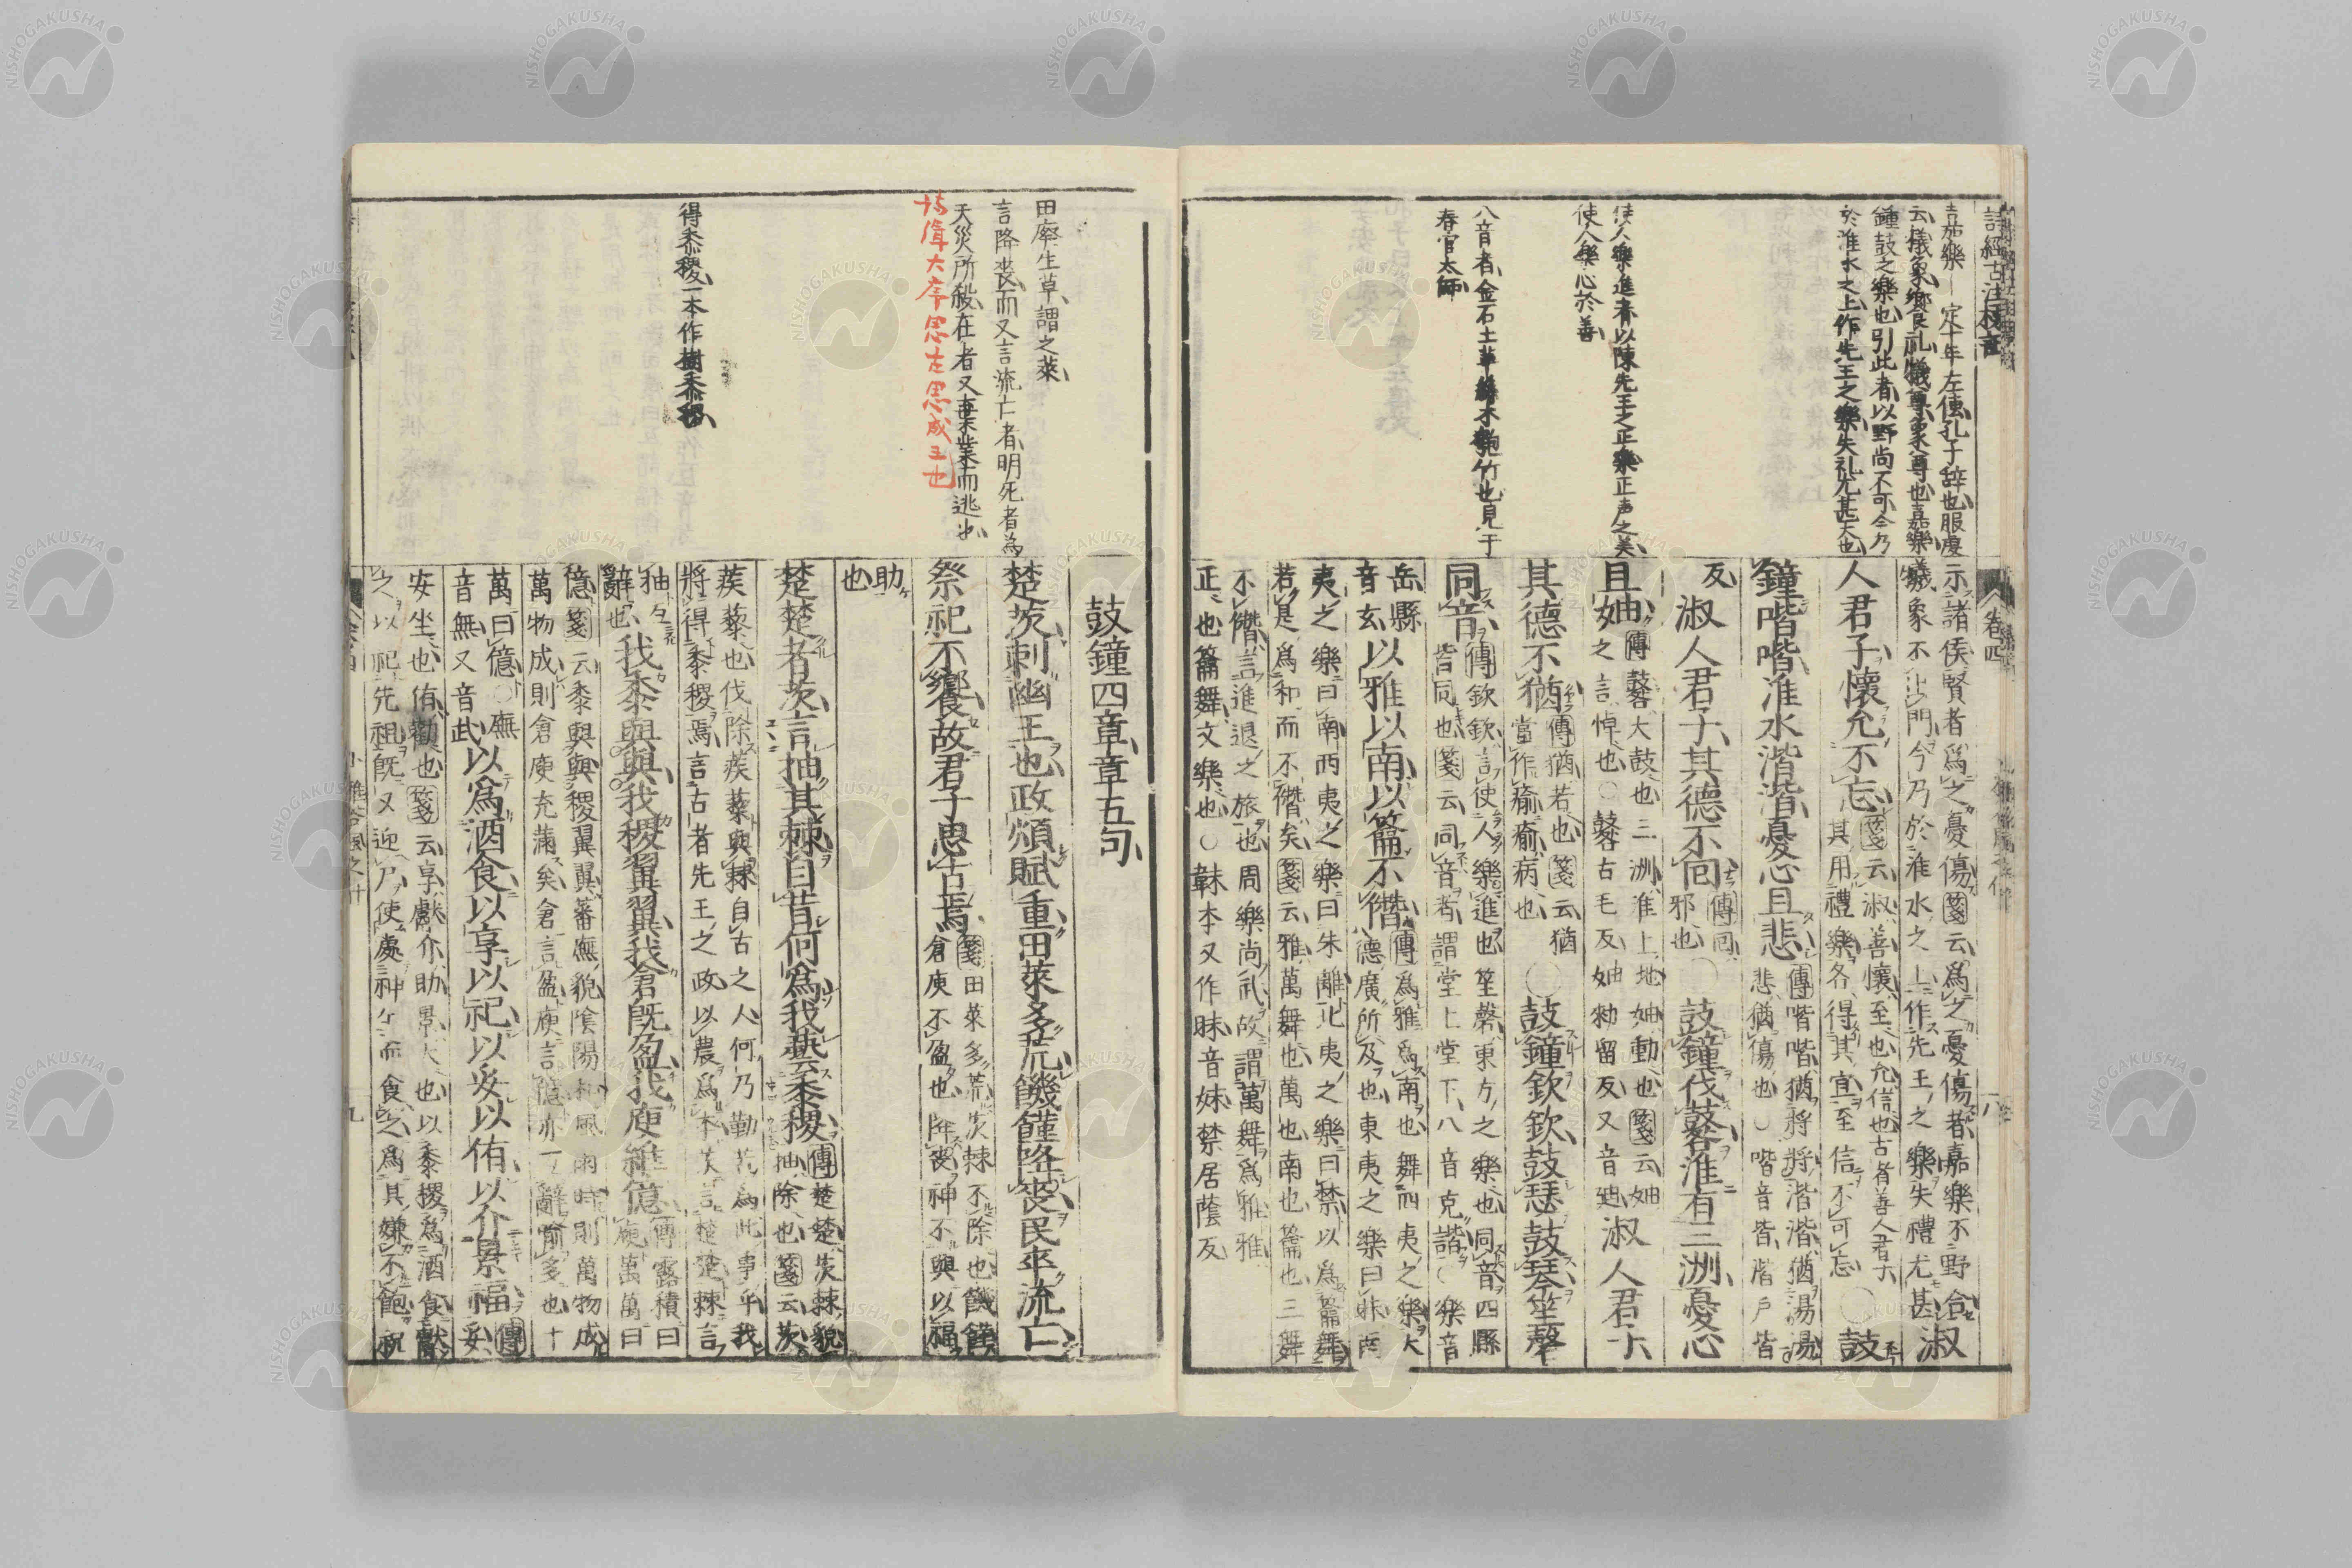 詩經古注標註
卷四
八
嘉樂 定十年左傳孔子辭也服虔
云犧象饗禮犧尊象尊也嘉樂
鍾鼓之樂也引此者以野尚不可今乃
於淮水之上作先王之樂失礼尤甚大也
使人樂進者以陳先王之正樂正声之美
使人樂心於善
八音者金石土革絲木匏竹也見于
春官太師
示諸侯賢者爲之憂傷箋云爲之憂傷者嘉樂不野合
犧象不出門今乃於淮水之上作先王之樂失禮尤甚淑
人君子懷允不忘箋云淑善懷至也允信也古者善人君子
其用禮樂各得其宜至信不可忘○鼓
鐘喈喈淮水湝湝憂心且悲傳喈喈猶將將湝湝猶湯湯
悲猶傷也○喈音皆湝戶皆
反淑人君子其德不回傳回邪也○鼓鐘伐鼛淮有三洲憂心
且妯傳鼛大鼓也三洲淮上地妯動也箋云妯
之言悼也○鼛古毛反妯勑留反又音廸淑人君子
其德不猶傳猶若也箋云猶
當作瘉瘉病也○鼓鐘欽欽鼓瑟鼓琴笙磬
同音傳欽欽言使人樂進也笙磬東方之樂也同音四縣
皆同也箋云同音者謂堂上堂下八音克諧○樂音
岳縣音玄以雅以南以籥不僭傳爲雅爲南也舞四夷之樂大
德廣所及也東夷之樂曰昧南
夷之樂曰南西夷之樂曰朱離北夷之樂曰禁以爲籥舞
若是爲和而不僭矣箋云雅萬舞也萬也南也籥也三舞
不僭言進退之旅也周樂尚武故謂萬舞爲雅雅
正也籥舞文樂也○韎本又作昧音妹禁居蔭反
田廢生草謂之萊
言降喪而又言流亡者明死者為
天災所殺在者又棄業而逃也
得黍稷一本作樹黍稷
鼓鐘四章章五句
楚茨刺幽王也政煩賦重田萊多荒饑饉降喪民卒流亡
祭祀不饗故君子思古焉箋田萊多荒茨棘不除也饑饉
倉庾不盈也降喪神不與以福
助也
楚楚者茨言抽其棘自昔何爲我蓺黍稷傳楚楚茨棘貌
抽除也箋云茨
蒺藜也伐除蒺藜與棘自古之人何乃勤苦為此事乎我
將得黍稷焉言古者先王之政以農爲本茨言楚楚棘言
抽互辭也我黍與與我稷翼翼我倉既盈我庾維億傳露積曰
庾萬萬曰
億箋云黍與與稷翼翼蕃廡貌陰陽和風雨時則萬物成
萬物成則倉庾充滿矣倉言盈庾言億亦互辭喻多也十
萬曰億○廡
音無又音武以爲酒食以享以祀以妥以侑以介景福傳妥
安坐也侑勸也箋云享獻介助景大也以黍稷爲酒食獻
之以祀先祖既又迎尸使處神坐而食之爲其嫌不飽祝
小雅谷風之什
九